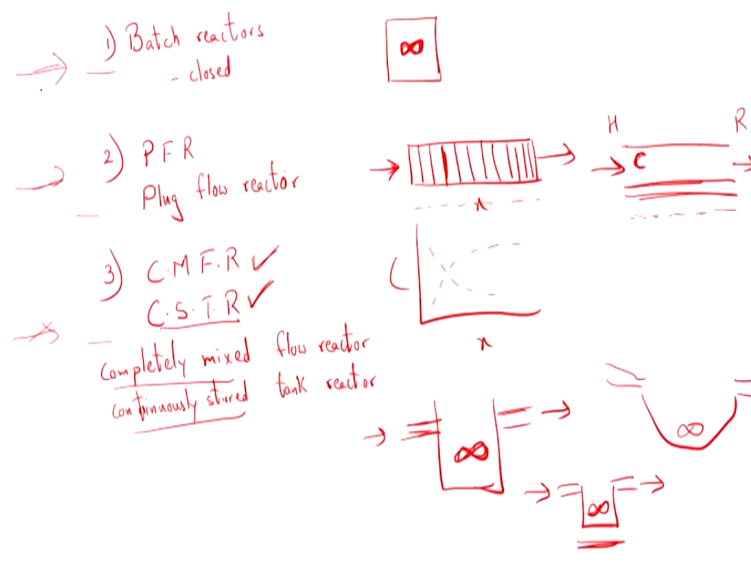 1) Batch reactors
- closed
∞
2) P F R
Plug flow reactor
x
H R
C
3) C.M.F.R ✓
C.S.T.R ✓
completely mixed flow reactor
continuously stirred tank reactor
C
x
∞
∞
∞